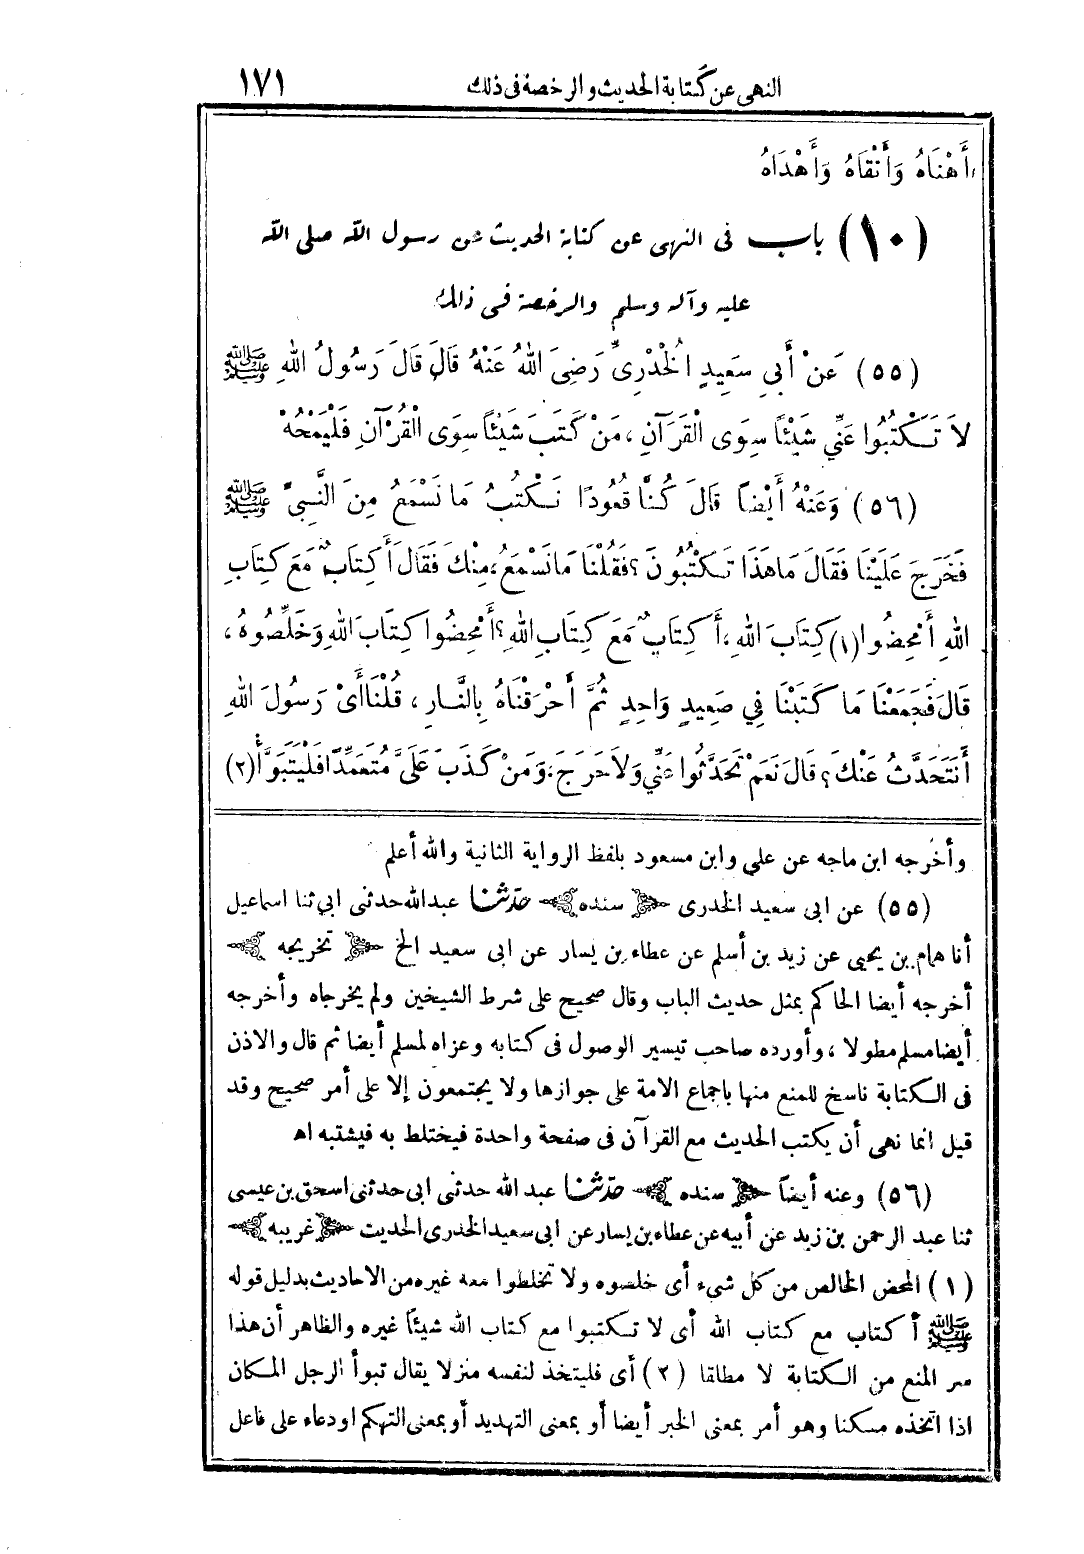 النهى عن كتابة الحديث والرخصة فى ذلك ١٧١
أَهْنَاهُ وَأَنْقَاهُ وَأَهْدَاهُ
(١٠) باب فى النهى عن كتابة الحديث عن رسول الله صلى الله
عليه وآله وسلم والرخصة فى ذلك
(٥٥) عَنْ أَبِي سَعِيدٍ الْخُدْرِىِّ رَضِىَ اللهُ عَنْهُ قَالَ قَالَ رَسُولُ اللهِ ﷺ
لاَ تَكْتُبُوا عَنِّي شَيْئًا سِوَى الْقُرْآنِ، مَنْ كَتَبَ شَيْئًا سِوَى الْقُرْآنِ فَلْيَمْحُهُ
(٥٦) وَعَنْهُ أَيْضًا قَالَ كُنَّا قُعُودًا نَكْتُبُ مَا نَسْمَعُ مِنَ النَّبِيِّ ﷺ
فَخَرَجَ عَلَيْنَا فَقَالَ مَا هَذَا تَكْتُبُونَ؟ فَقُلْنَا مَا نَسْمَعُ مِنْكَ فَقَالَ أَكِتَابٌ مَعَ كِتَابِ
اللهِ أَمْحِضُوا (١) كِتَابَ اللهِ، أَكِتَابٌ مَعَ كِتَابِ اللهِ؟ أَمْحِضُوا كِتَابَ اللهِ وَخَلِّصُوهُ،
قَالَ فَجَمَعْنَا مَا كَتَبْنَا فِي صَعِيدٍ وَاحِدٍ ثُمَّ أَحْرَقْنَاهُ بِالنَّارِ، قُلْنَا أَىْ رَسُولَ اللهِ
أَنَتَحَدَّثُ عَنْكَ؟ قَالَ نَعَمْ تَحَدَّثُوا عَنِّي وَلاَ حَرَجَ، وَمَنْ كَذَبَ عَلَىَّ مُتَعَمِّدًا فَلْيَتَبَوَّأْ (٢)
وأخرجه ابن ماجه عن علي وابن مسعود بلفظ الرواية الثانية والله أعلم
(٥٥) عن ابى سعيد الخدرى ﴿ سنده ﴾ حدثنا عبد الله حدثنى ابى ثنا اسماعيل
أنا همام بن يحيى عن زيد بن أسلم عن عطاء بن يسار عن ابى سعيد الخ ﴿ تخريجه ﴾
أخرجه أيضا الحاكم بمثل حديث الباب وقال صحيح على شرط الشيخين ولم يخرجاه وأخرجه
أيضا مسلم مطولا، وأورده صاحب تيسير الوصول فى كتابه وعزاه لمسلم أيضا ثم قال والاذن
فى الكتابة ناسخ للمنع منها باجماع الامة على جوازها ولا يجتمعون إلا على أمر صحيح وقد
قيل انما نهى أن يكتب الحديث مع القرآن فى صفحة واحدة فيختلط به فيشتبه اه
(٥٦) وعنه أيضاً ﴿ سنده ﴾ حدثنا عبد الله حدثنى ابى حدثنى اسحق بن عيسى
ثنا عبد الرحمن بن زيد عن أبيه عن عطاء بن يسار عن ابى سعيد الخدرى الحديث ﴿ غريبه ﴾
(١) المحض الخالص من كل شيء أى خلصوه ولا تخلطوا معه غيره من الاحاديث بدليل قوله
ﷺ أكتاب مع كتاب الله أى لا تكتبوا مع كتاب الله شيئاً غيره والظاهر أن هذا
سر المنع من الكتابة لا مطلقا (٢) أى فليتخذ لنفسه منزلا يقال تبوأ الرجل المكان
اذا اتخذه مسكنا وهو أمر بمعنى الخبر أيضا أو بمعنى التهديد أو بمعنى التهكم او دعاء على فاعل